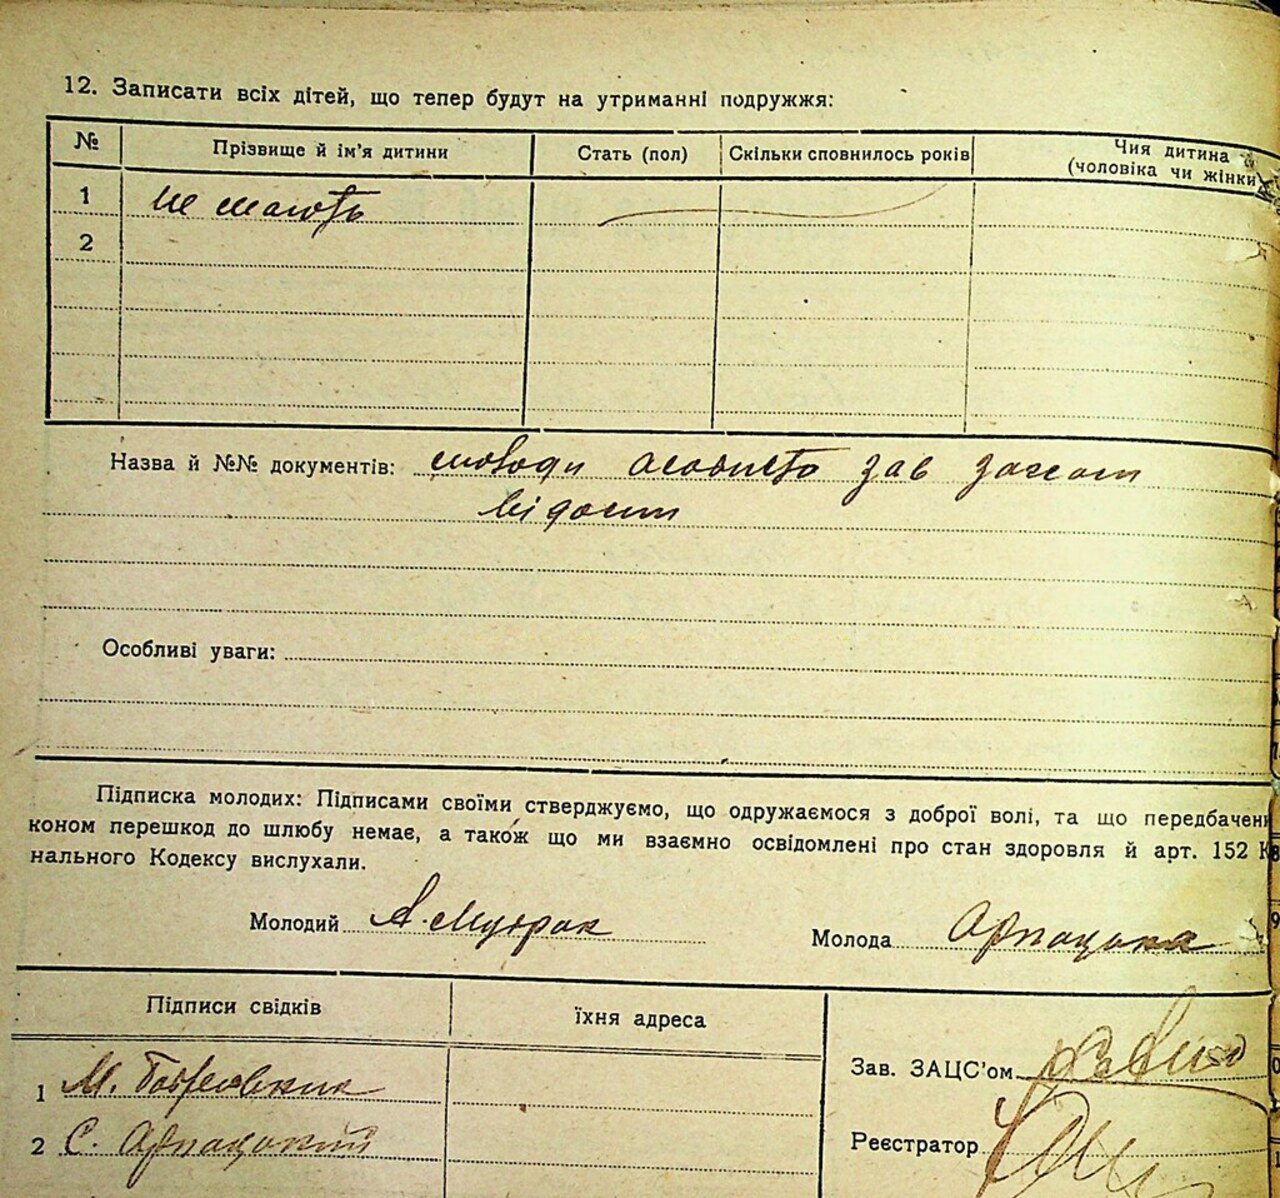 12. Записати всіх дітей, що тепер будут на утриманні подружжя:
№ Прізвище й ім'я дитини Стать (пол) Скільки сповнилось років Чия дитина
(чоловіка чи жінки
1 не мають
2
Назва й №№ документів: особисто зав
Особливі уваги:
Підписка молодих: Підписами своїми стверджуємо, що одружаємося з доброї волі, та що передбачени
коном перешкод до шлюбу немає, а також що ми взаємно освідомлені про стан здоровля й арт. 152 К
нального Кодексу вислухали.
Молодий А. Мудрак Молода
Підписи свідків їхня адреса
Зав. ЗАЦС'ом
1 М.
2 С.
Реєстратор